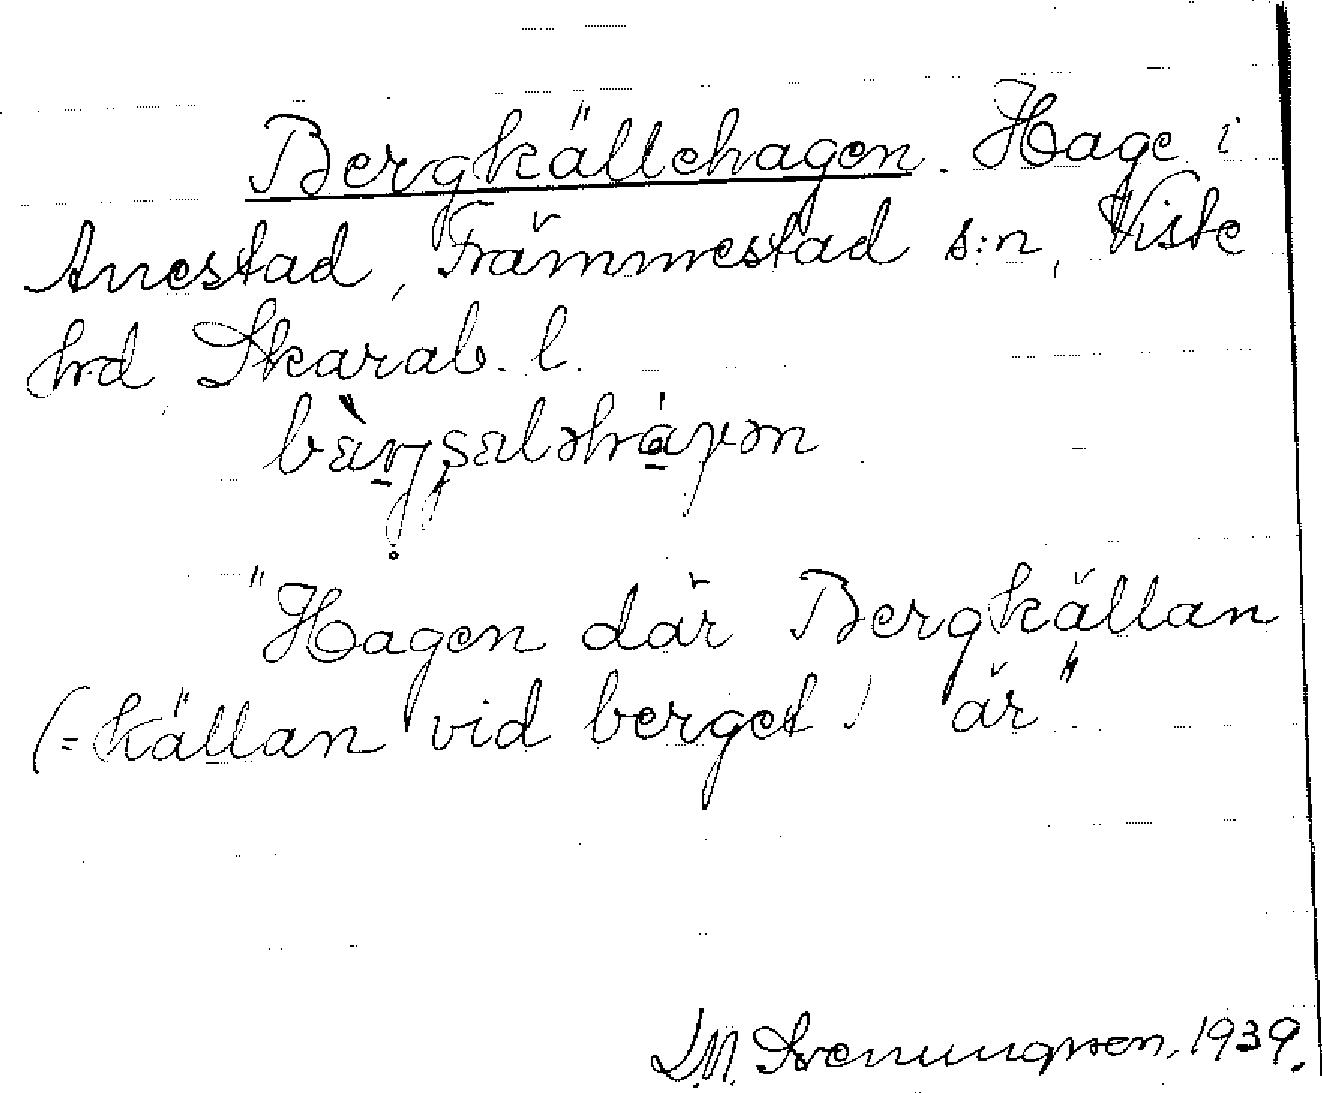 Bergkällehagen. Hage i
Anestad, Främmestad s:n, Viste
hrd, Skarab. l.
"Hagen där Bergkällan
(=källan vid berget) är".
L.M. Svenungsson, 1939.